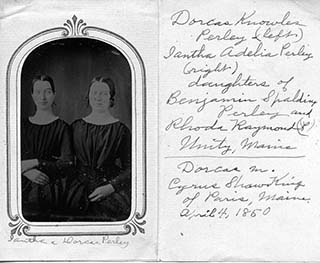 Iantha & Dorcas Perley
Dorcas Knowles
Perley (left)
Iantha Adelia Perley
(right)
daughters of
Benjamin Spalding
Perley and
Rhoda Raymond (P)
Unity, Maine
Dorcas m.
Cyrus Shaw King
of Paris, Maine
April 4, 1850